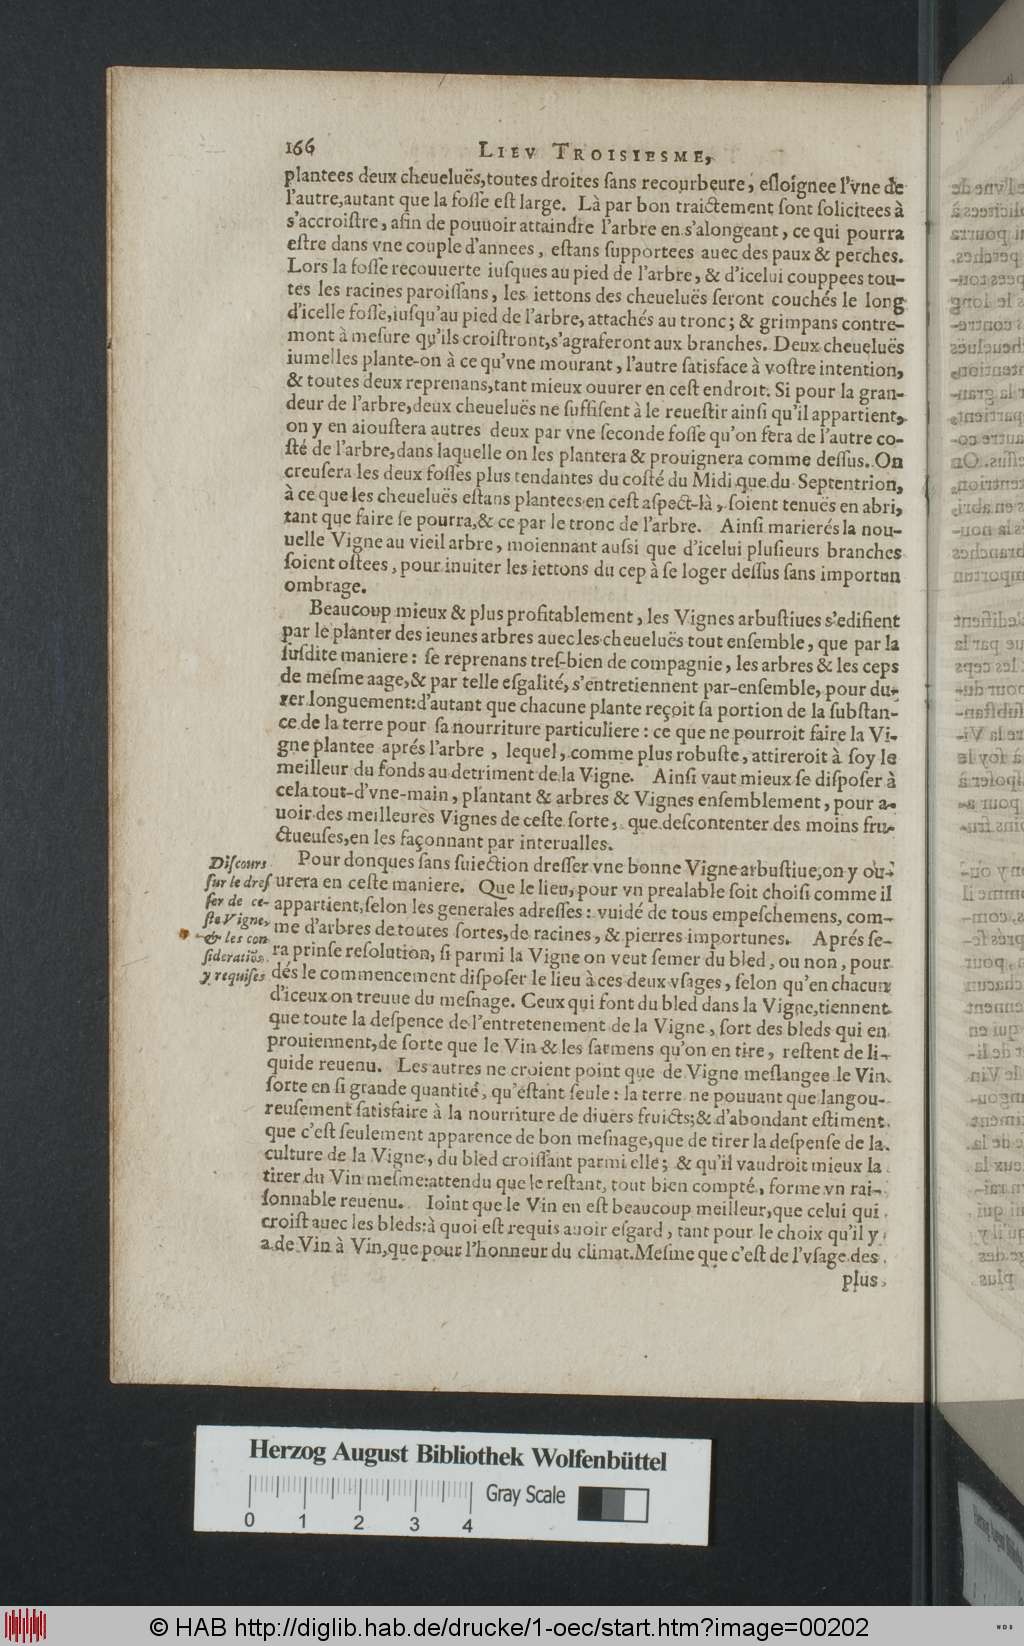 166 LIEV TROISIESME,
plantees deux cheueluës, toutes droites ſans recourbeure, eſloignee l'vne de
l'autre, autant que la foſſe eſt large. Là par bon traictement ſont ſolicitees à
s'accroiſtre, afin de pouuoir attaindre l'arbre en s'alongeant, ce qui pourra
eſtre dans vne couple d'annees, eſtans ſupportees auec des paux & perches.
Lors la foſſe recouuerte iuſques au pied de l'arbre, & d'icelui couppees tou-
tes les racines paroiſſans, les iettons des cheueluës ſeront couchés le long
d'icelle foſſe, iuſqu'au pied de l'arbre, attachés au tronc; & grimpans contre-
mont à meſure qu'ils croiſtront, s'agraferont aux branches. Deux cheueluës
iumelles plante-on à ce qu'vne mourant, l'autre ſatisface à voſtre intention,
& toutes deux reprenans, tant mieux ouurer en ceſt endroit. Si pour la gran-
deur de l'arbre, deux cheueluës ne ſuffiſent à le reueſtir ainſi qu'il appartient,
on y en aiouſtera autres deux par vne ſeconde foſſe qu'on fera de l'autre co-
ſté de l'arbre, dans laquelle on les plantera & prouignera comme deſſus. On
creuſera les deux foſſes plus tendantes du coſté du Midi que du Septentrion,
à ce que les cheueluës eſtans plantees en ceſt aſpect-là, ſoient tenuës en abri,
tant que faire ſe pourra, & ce par le tronc de l'arbre. Ainſi marierés la nou-
uelle Vigne au vieil arbre, moiennant auſsi que d'icelui pluſieurs branches
ſoient oſtees, pour inuiter les iettons du cep à ſe loger deſſus ſans importun
ombrage.
Beaucoup mieux & plus profitablement, les Vignes arbuſtiues s'edifient
par le planter des ieunes arbres auec les cheueluës tout enſemble, que par la
ſuſdite maniere: ſe reprenans treſ-bien de compagnie, les arbres & les ceps
de meſme aage, & par telle eſgalité, s'entretiennent par-enſemble, pour du-
rer longuement: d'autant que chacune plante reçoit ſa portion de la ſubſtan-
ce de la terre pour ſa nourriture particuliere: ce que ne pourroit faire la Vi-
gne plantee aprés l'arbre, lequel, comme plus robuſte, attireroit à ſoy le
meilleur du fonds au detriment de la Vigne. Ainſi vaut mieux ſe diſpoſer à
cela tout-d'vne-main, plantant & arbres & Vignes enſemblement, pour a-
uoir des meilleures Vignes de ceſte ſorte, que deſcontenter des moins fru-
ctueuſes, en les façonnant par interualles.
Diſcours
ſur le dreſ
ſer de ce-
ſte Vigne,
& les con
ſideratiõs
y requiſes
Pour donques ſans ſuiection dreſſer vne bonne Vigne arbuſtiue, on y ou-
urera en ceſte maniere. Que le lieu, pour vn prealable ſoit choiſi comme il
appartient, ſelon les generales adreſſes: vuidé de tous empeſchemens, com-
me d'arbres de toutes ſortes, de racines, & pierres importunes. Aprés ſe-
ra prinſe reſolution, ſi parmi la Vigne on veut ſemer du bled, ou non, pour
dés le commencement diſpoſer le lieu à ces deux vſages, ſelon qu'en chacun
d'iceux on treuue du meſnage. Ceux qui font du bled dans la Vigne, tiennent
que toute la deſpence de l'entretenement de la Vigne, ſort des bleds qui en
prouiennent, de ſorte que le Vin & les ſarmens qu'on en tire, reſtent de li-
quide reuenu. Les autres ne croient point que de Vigne meſlangee le Vin
ſorte en ſi grande quantité, qu'eſtant ſeule: la terre ne pouuant que langou-
reuſement ſatisfaire à la nourriture de diuers fruicts; & d'abondant eſtiment
que c'eſt ſeulement apparence de bon meſnage, que de tirer la deſpenſe de la
culture de la Vigne, du bled croiſſant parmi elle; & qu'il vaudroit mieux la
tirer du Vin meſme: attendu que le reſtant, tout bien compté, forme vn rai-
ſonnable reuenu. Ioint que le Vin en eſt beaucoup meilleur, que celui qui
croiſt auec les bleds: à quoi eſt requis auoir eſgard, tant pour le choix qu'il y
a de Vin à Vin, que pour l'honneur du climat. Meſme que c'eſt de l'vſage des
plus
Herzog August Bibliothek Wolfenbüttel
Gray Scale
0 1 2 3 4
© HAB http://diglib.hab.de/drucke/1-oec/start.htm?image=00202